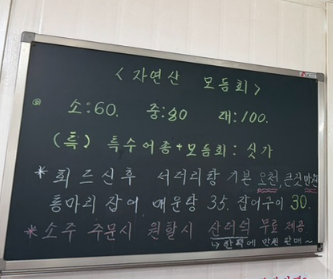 < 자연산 모듬회 >
소:60. 중:80 대:100.
(특) 특수어종+모듬회 : 싯가
* 회 뜨신후 서더리탕 기본
통마리 잡어 매운탕 35. 잡어구이 30.
* 소주 주문시 원할시 산더덕 무료 제공